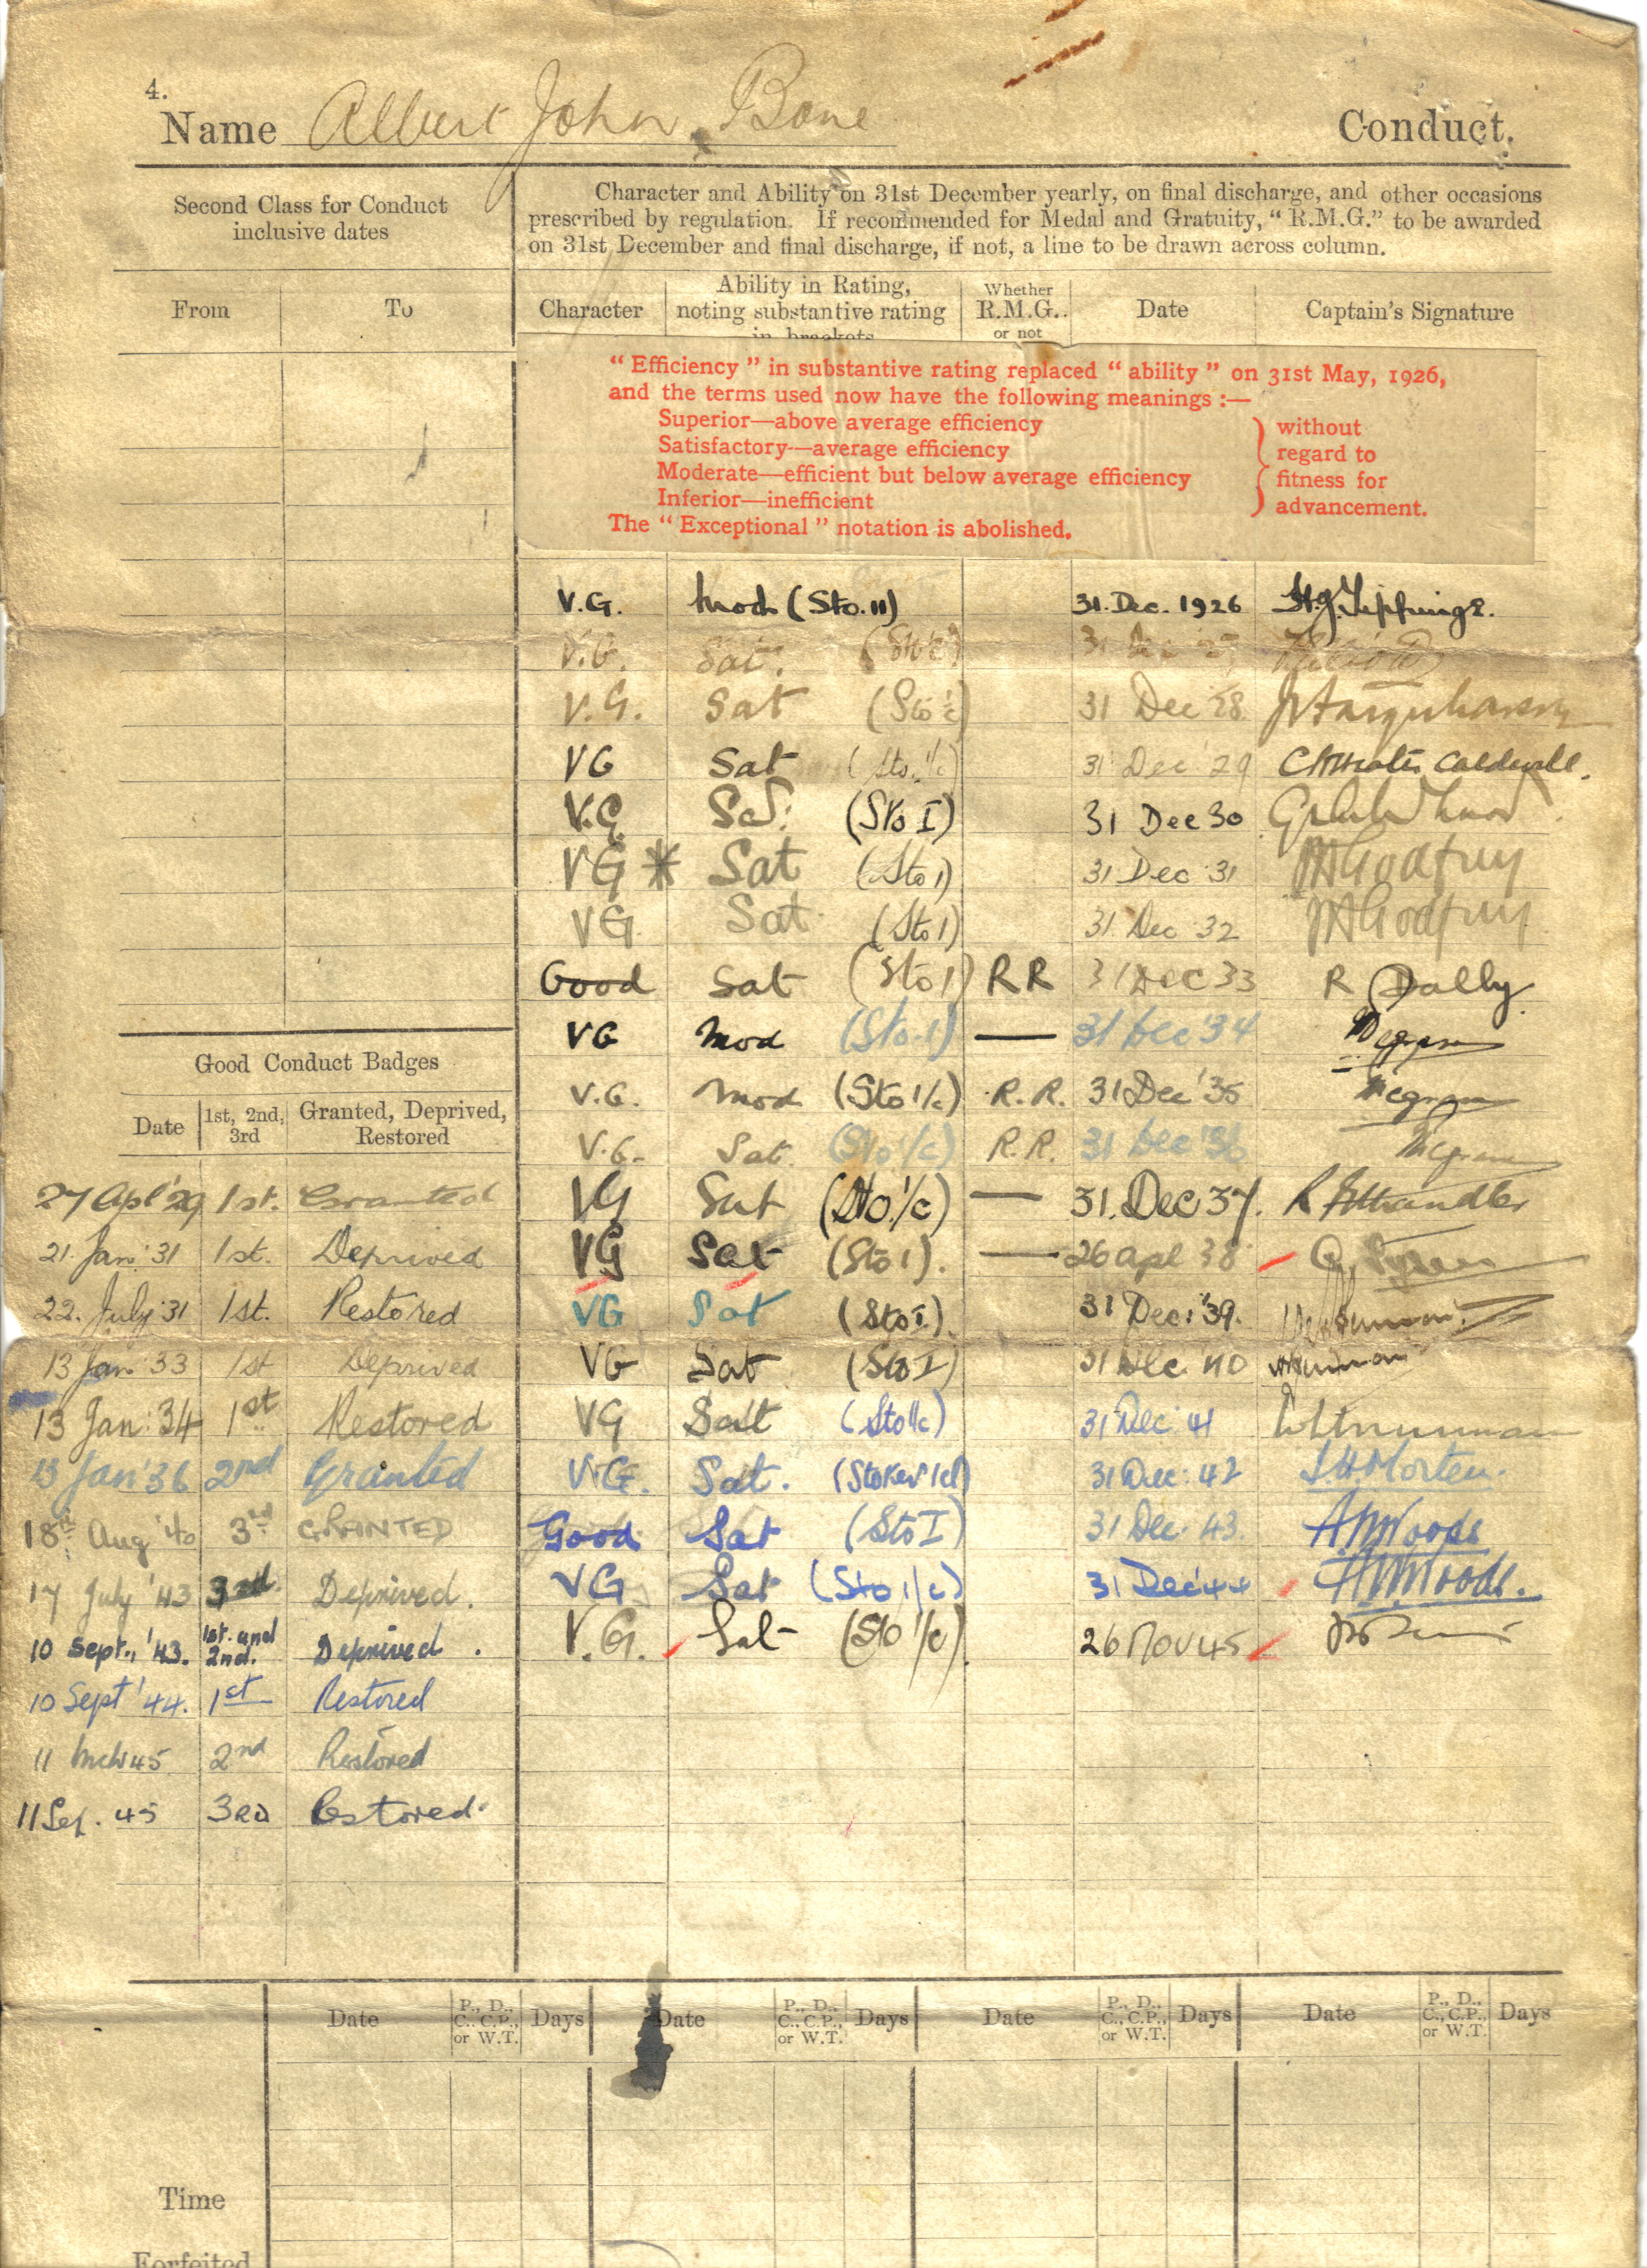 4.
Name Albert John Bone Conduct.
Second Class for Conduct
inclusive dates
Character and Ability on 31st December yearly, on final discharge, and other occasions
prescribed by regulation. If recommended for Medal and Gratuity, "R.M.G." to be awarded
on 31st December and final discharge, if not, a line to be drawn across column.
From To
Character
Ability in Rating,
noting substantive rating
in brackets
Whether
R.M.G.
or not
Date Captain's Signature
"Efficiency" in substantive rating replaced "ability" on 31st May, 1926,
and the terms used now have the following meanings :—
Superior—above average efficiency
Satisfactory—average efficiency
Moderate—efficient but below average efficiency
Inferior—inefficient
without
regard to
fitness for
advancement.
The "Exceptional" notation is abolished.
V.G. Mod (Sto. II) 31. Dec. 1926
V.G. Sat. (Sto 1/c) 31 Dec 27
V.G. Sat (Sto 1/c) 31 Dec 28
VG Sat (Sto. 1/c) 31 Dec '29
V.G. Sat. (Sto I) 31 Dec 30
VG * Sat (Sto 1) 31 Dec 31 Godfrey
VG Sat (Sto 1) 31 Dec 32 Godfrey
Good Sat (Sto 1) RR 31 Dec 33 R Dalby
VG Mod (Sto.1) — 31 Dec '34
V.G. Mod (Sto 1/c) R.R. 31 Dec '35
V.G. Sat. (Sto 1/c) R.R. 31 Dec '36
VG Sat (Sto 1/c) — 31. Dec 37.
VG Sat (Sto 1). — 26 Apl 38
VG Sat (Sto I). 31 Dec: '39.
VG Sat (Sto I) 31 Dec '40
VG Sat (Sto 1/c) 31 Dec: 41
V.G. Sat. (Stoker 1cl) 31 Dec: 42 Morten.
Good Sat (Sto I) 31 Dec: 43. Woods
VG Sat (Sto 1/c) 31 Dec '44 Woods.
V.G. Sat (Sto 1/c) 26 Nov 45
Good Conduct Badges
Date
1st, 2nd,
3rd
Granted, Deprived,
Restored
27 Apl '29 1st. Granted
21. Jan '31 1st. Deprived
22. July '31 1st. Restored
13 Jan '33 1st Deprived
13 Jan: 34 1st Restored
13 Jan '36 2nd Granted
18th Aug '40 3rd GRANTED
17 July '43 3rd. Deprived.
10 Sept., '43. 1st. and 2nd. Deprived.
10 Sept '44. 1st Restored
11 Mch 45 2nd Restored
11 Sep. 45 3RD Restored
Date P., D., C., C.P., or W.T. Days Date P., D., C., C.P., or W.T. Days Date P., D., C., C.P., or W.T. Days Date P., D., C., C.P., or W.T. Days
Time
Forfeited